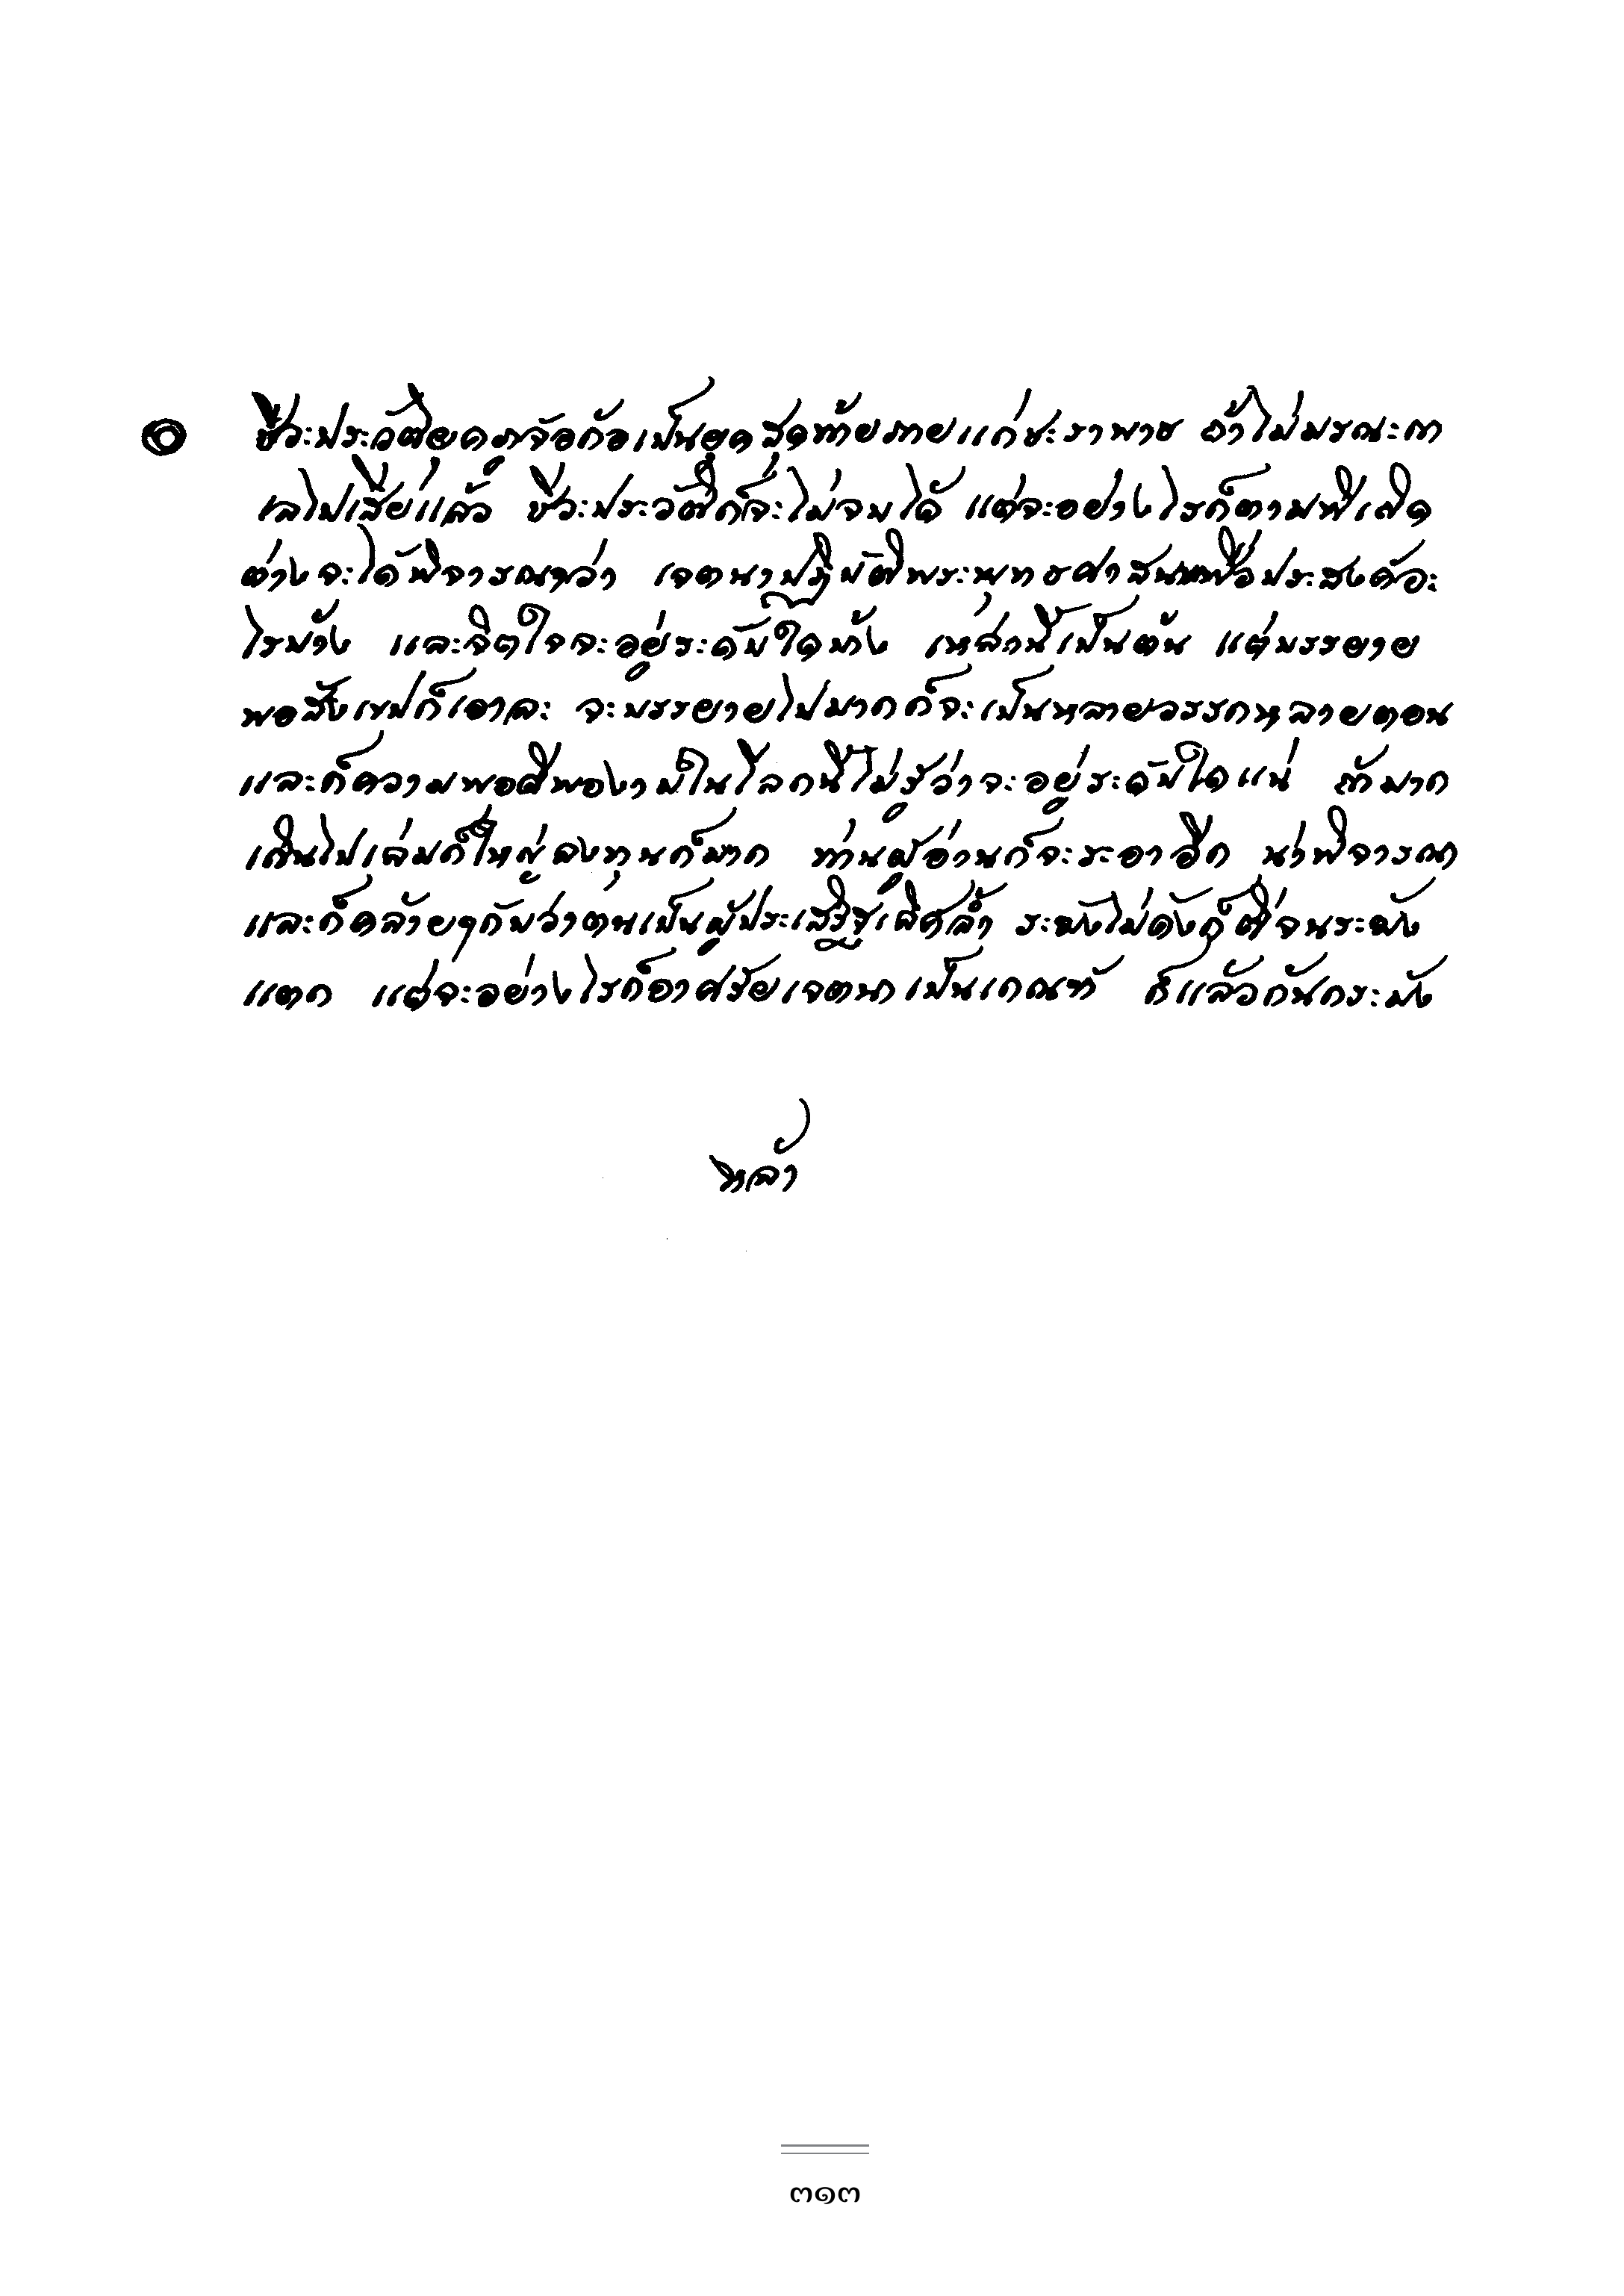 ๏ ชีวะประวัติยุคภูจ้อก้อเป็นยุคสุดท้ายภายแก่ชะราพาธ ถ้าไม่มรณะกา
เลไปเสียแล้ว ชีวะประวัติก็จะไม่จบได้ แต่จะอย่างไรก็ตามพึเลิด
ต่างจะได้พิจารณาว่า เจตนาปฏิบัติพระพุทธศาสนาเพื่อประสงค์อะ
ไรบ้าง และจิตใจจะอยู่ระดับใดบ้าง เหล่านี้เป็นต้น แต่บรรยาย
พอสังเขปก็เอาละ จะบรรยายไปมากก็จะเป็นหลายวรรคหลายตอน
และก็ความพอดีพองามในโลกนี้ไม่รู้ว่าจะอยู่ระดับใดแน่ ถ้ามาก
เกินไปเล่มก็ใหญ่ลงทุนก็มาก ท่านผู้อ่านก็จะระอาอีก น่าพิจารณา
และก็คล้ายๆกับว่าตนเป็นผู้ประเสริฐเลิศล้ำ ระฆังไม่ดังก็ตีจนระฆัง
แตก แต่จะอย่างไรก็อาศรัยเจตนาเป็นเกณฑ์ ก็แล้วกันกระมัง
หล้า
๓๑๓